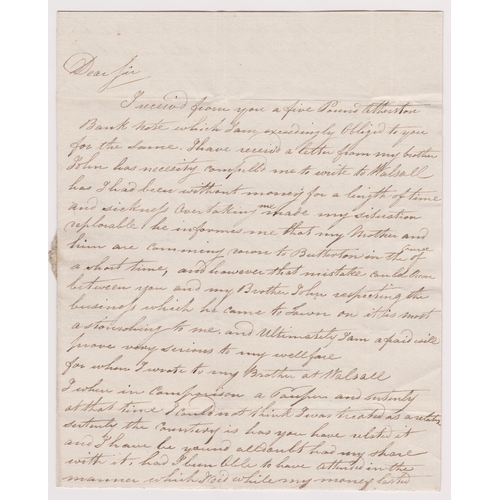 Dear Sir
I receivd from you a five Pound Atherston
Bank Note which I am exceedingly Obligd to you
for the same. I have receivd a letter from my brother
John has necesity compells me to write to Walsall
has I had been without money for a length of time
and sickness Overtaking me made my situation
replorable he informes me that my Mother and
him are comming over to in the course of
a short time, and however that mistake could Occur
between you and my Brother John respecting the
business which he came to on it is most
astonishing to me, and Ultimately I am afraid will
prove very serious to my wellfare
for when I wrote to my Brother at Walsall
I where in comparason a Pauper and sertenly
at that time I could not think I was treated as a relation
sertenly the Countery is has you have it
and I have be yound alldoubt had my share
with it, had I been Able to have in the
manner which I did while my money lasted